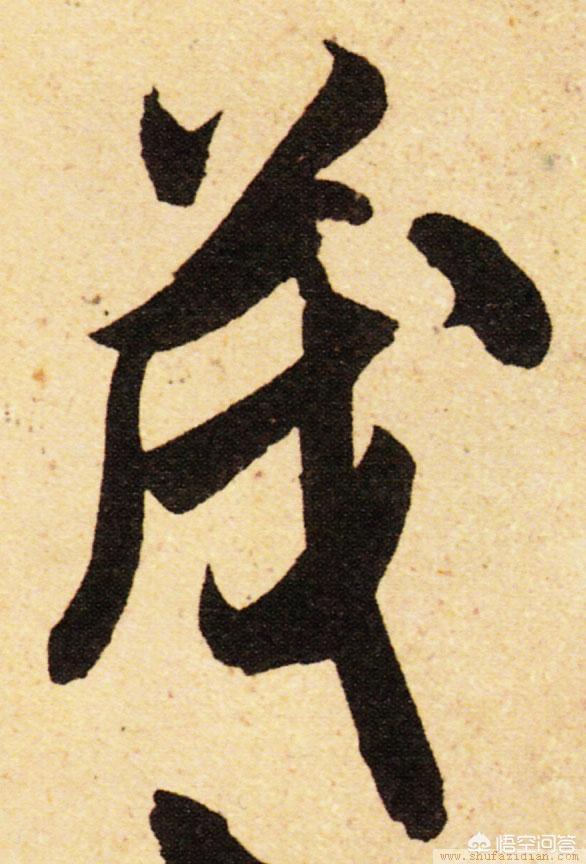 茂
悟空问答
www.shufazidian.com